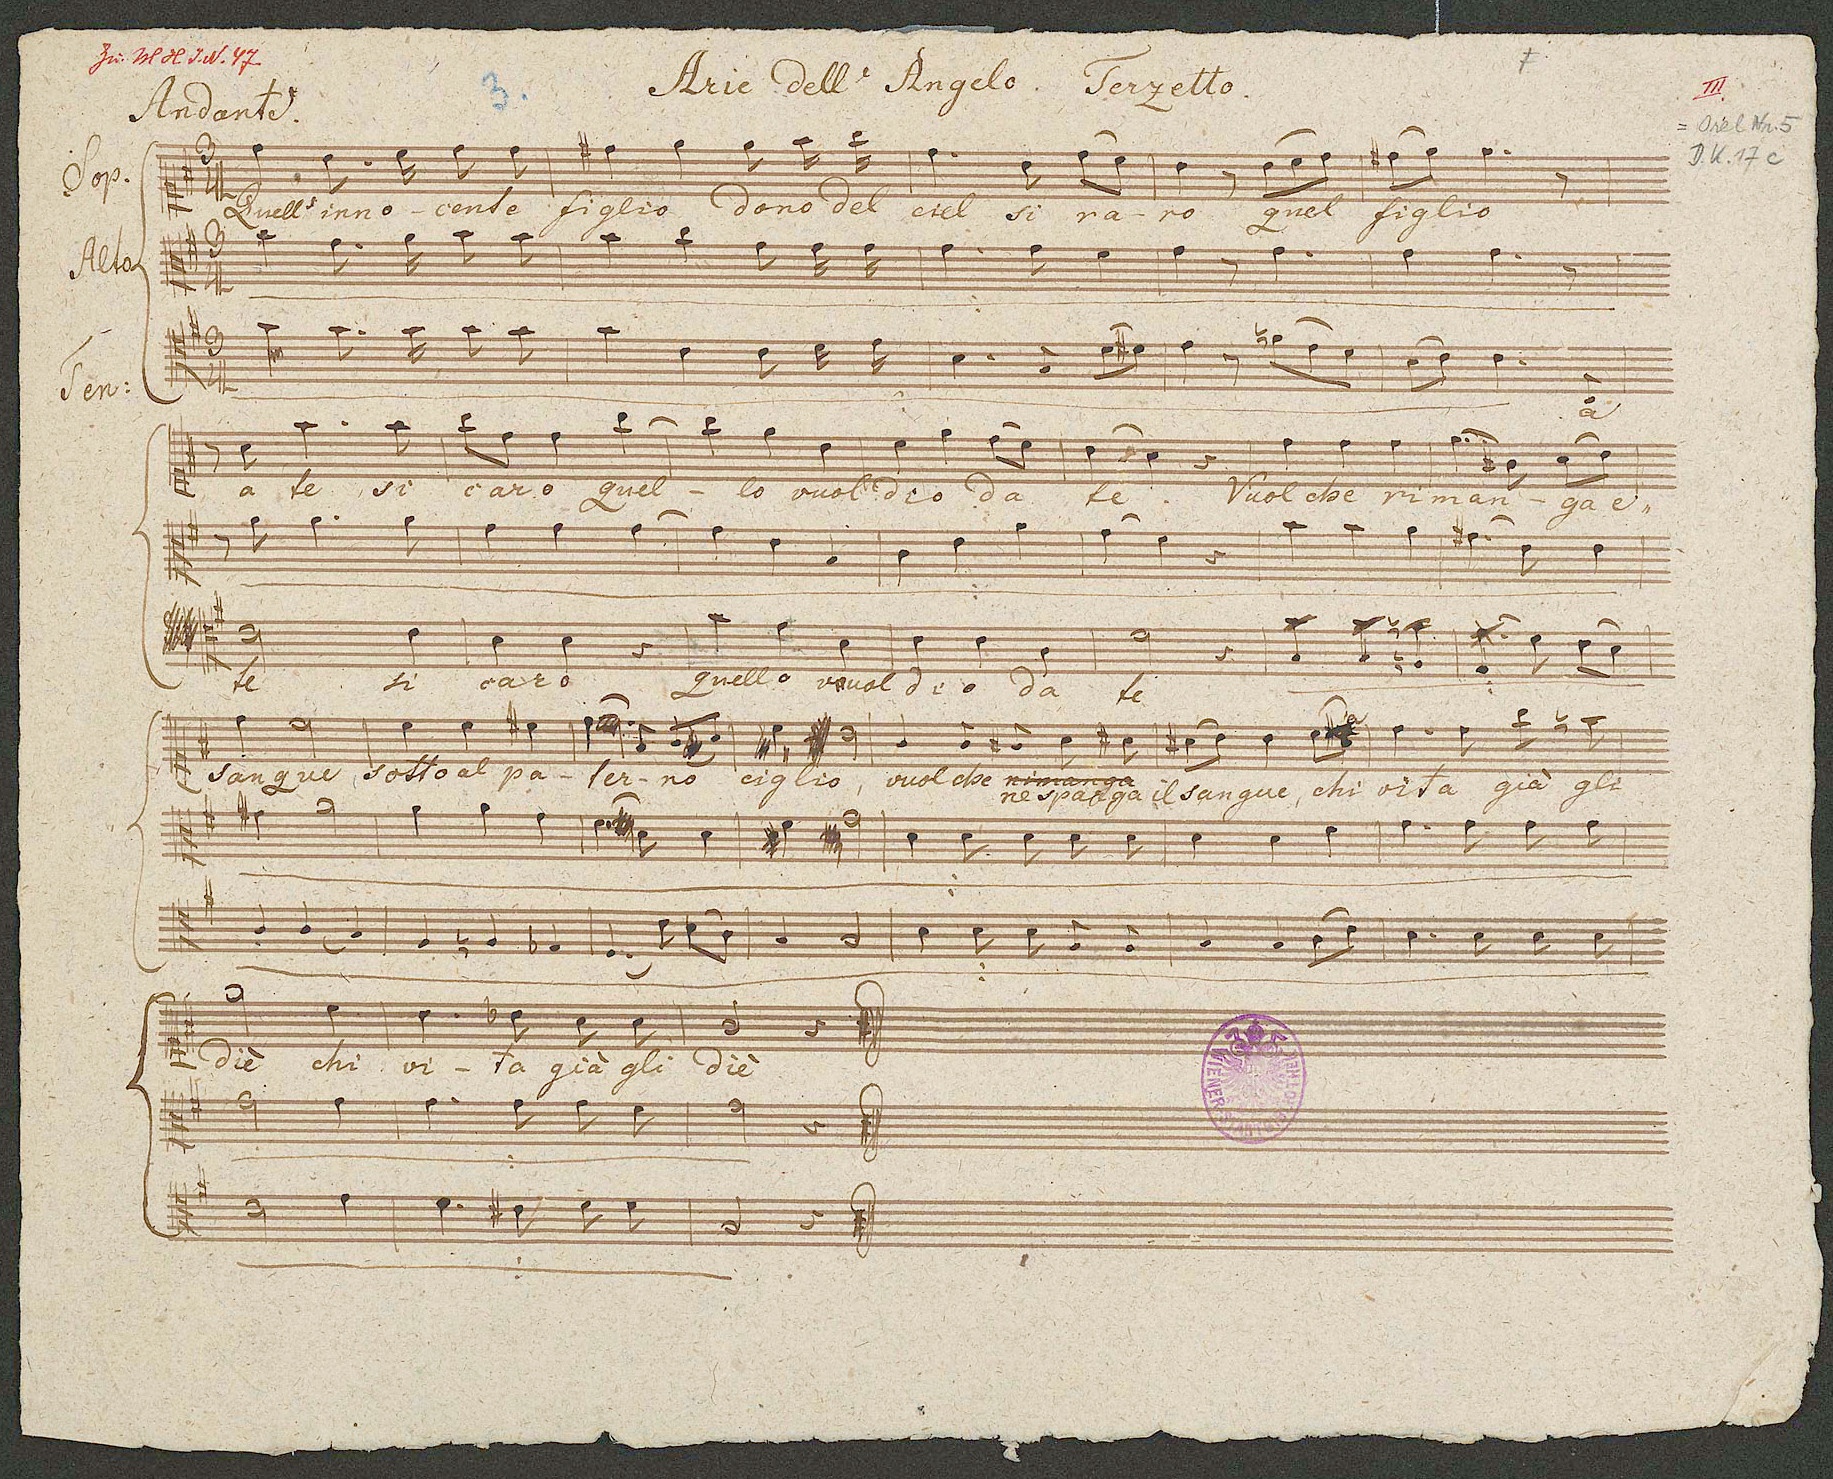 Zu: M H I.N. 47
3.
Arie dell' Angelo. Terzetto.
7
III
= Orel Nr. 5
D. V. 17 c
Andante.
Sop.
Quell' inno - cente figlio dono del ciel si ra - ro quel figlio
Alto
Ten:
a
a te si caro quel - lo vuol dio da te. Vuol che riman - ga e„
te si caro quello vuol dio da te
sangue sotto al pa - ter - no ciglio, vuol che rimanga
ne sparga il sangue, chi vita già gli
diè chi vi - ta già gli diè
WIENER